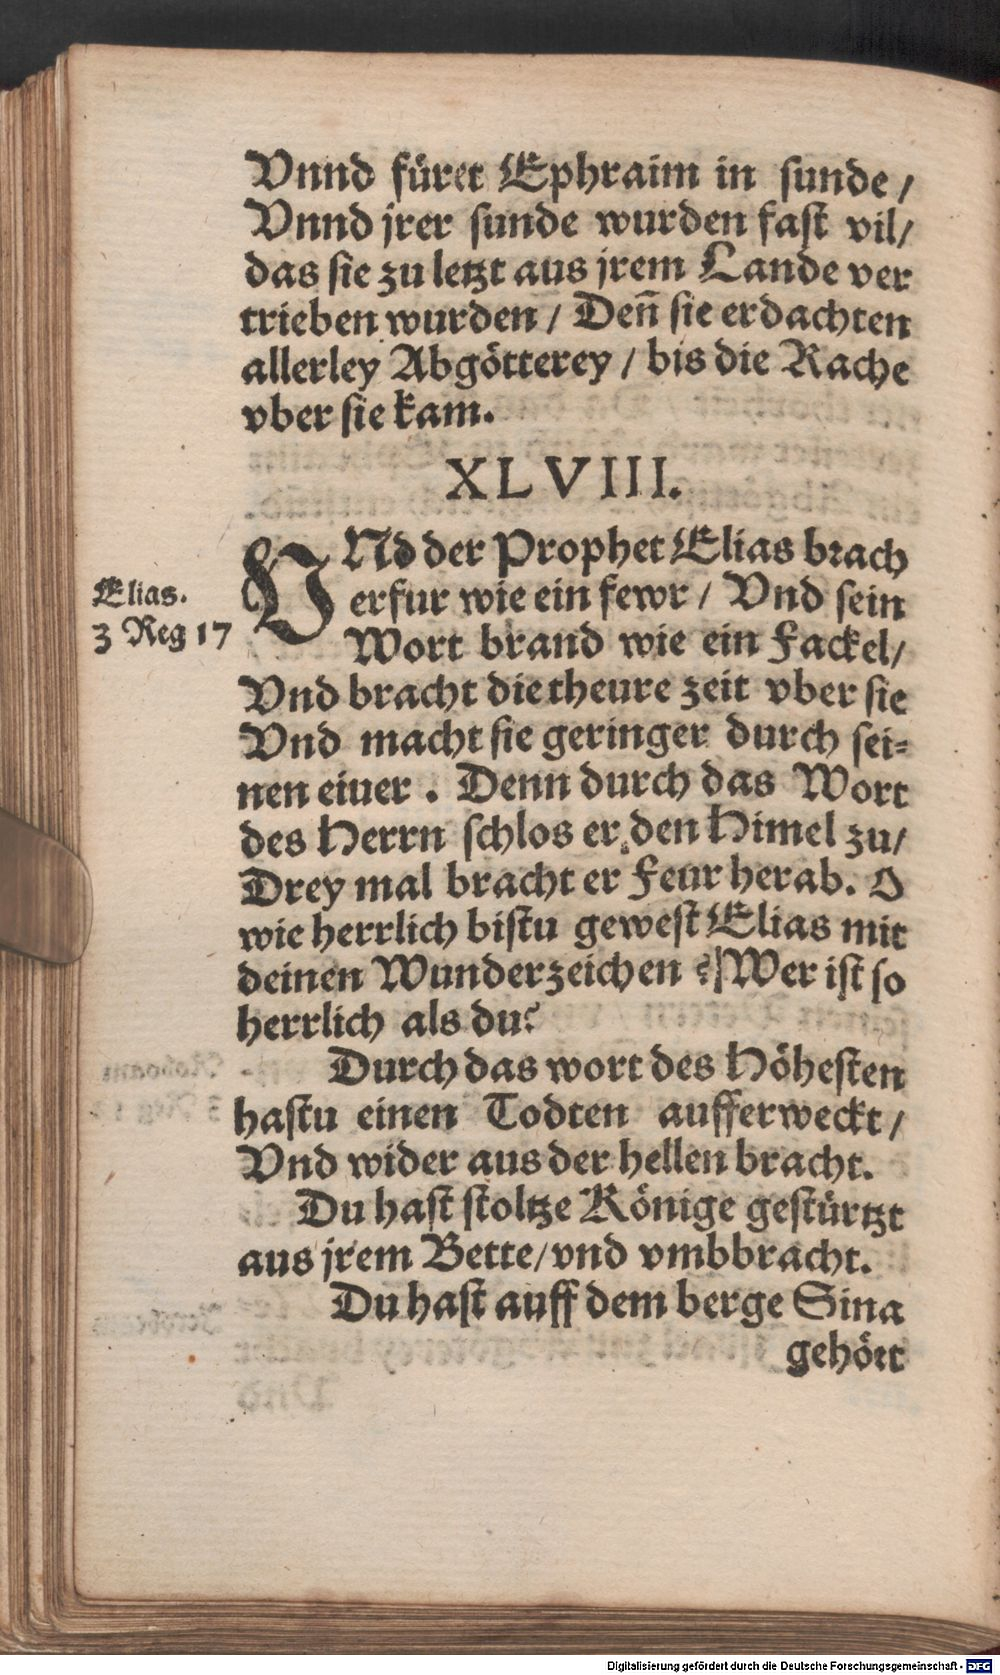 Vnnd füret Ephraim in sunde /
Vnnd jrer sunde wurden fast vil /
das sie zu letzt aus jrem Lande ver
trieben wurden / Deñ sie erdachten
allerley Abgötterey / bis die Rache
vber sie kam.
XLVIII.
VNd der Prophet Elias brach
erfur wie ein fewr / Vnd sein
Wort brand wie ein Fackel /
Elias.
3 Reg 17
Vnd bracht die theure zeit vber sie
Vnd macht sie geringer durch sei=
nen eiuer . Denn durch das Wort
des Herrn schlos er den Himel zu /
Drey mal bracht er Feur herab. O
wie herrlich bistu gewest Elias mit
deinen Wunderzeichen ? Wer ist so
herrlich als du?
Durch das wort des Höhesten
hastu einen Todten aufferweckt /
Vnd wider aus der hellen bracht.
Du hast stoltze Könige gestürtzt
aus jrem Bette / vnd vmbbracht.
Du hast auff dem berge Sina
gehört
Digitalisierung gefördert durch die Deutsche Forschungsgemeinschaft - DFG